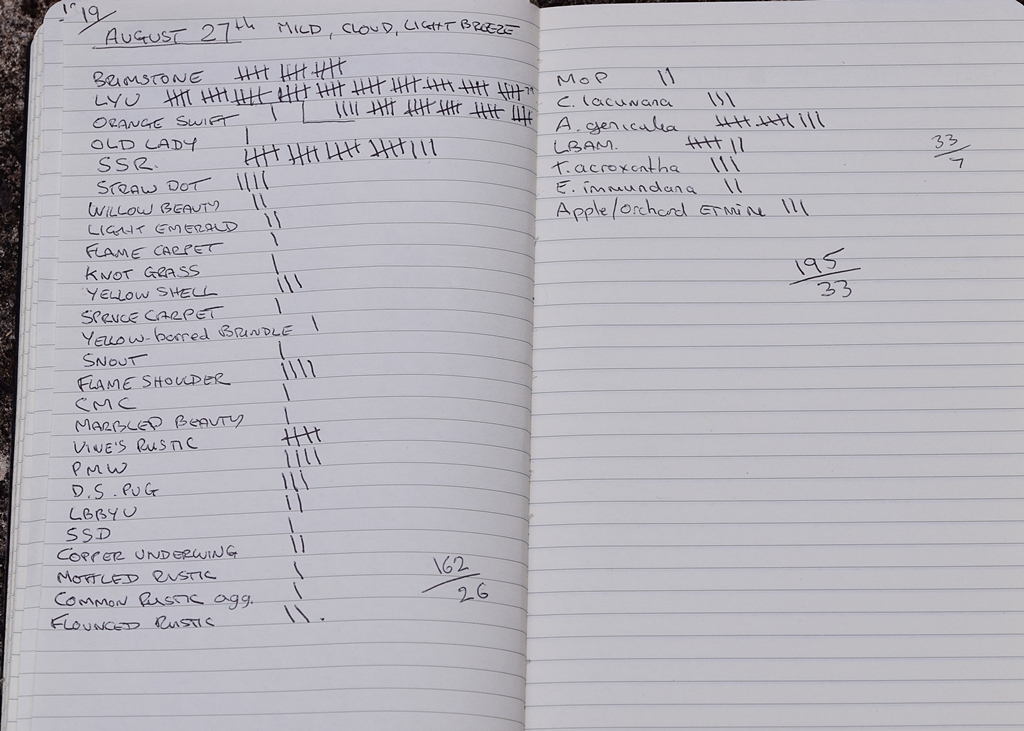 19
AUGUST 27th MILD, CLOUD, LIGHT BREEZE
BRIMSTONE
LYU
ORANGE SWIFT
OLD LADY
SSR.
STRAW DOT
WILLOW BEAUTY
LIGHT EMERALD
FLAME CARPET
KNOT GRASS
YELLOW SHELL
SPRUCE CARPET
YELLOW-barred BRINDLE
SNOUT
FLAME SHOULDER
CMC
MARBLED BEAUTY
VINE'S RUSTIC
PMW
D.S. PUG
LBBYU
SSD
COPPER UNDERWING
MOTTLED RUSTIC
COMMON RUSTIC agg.
FLOUNCED RUSTIC
162/26
MOP
C. lacunana
A. geniculea
LBAM.
T. acroxantha
E. immundana
Apple/Orchard ERMINE
33/7
195/33